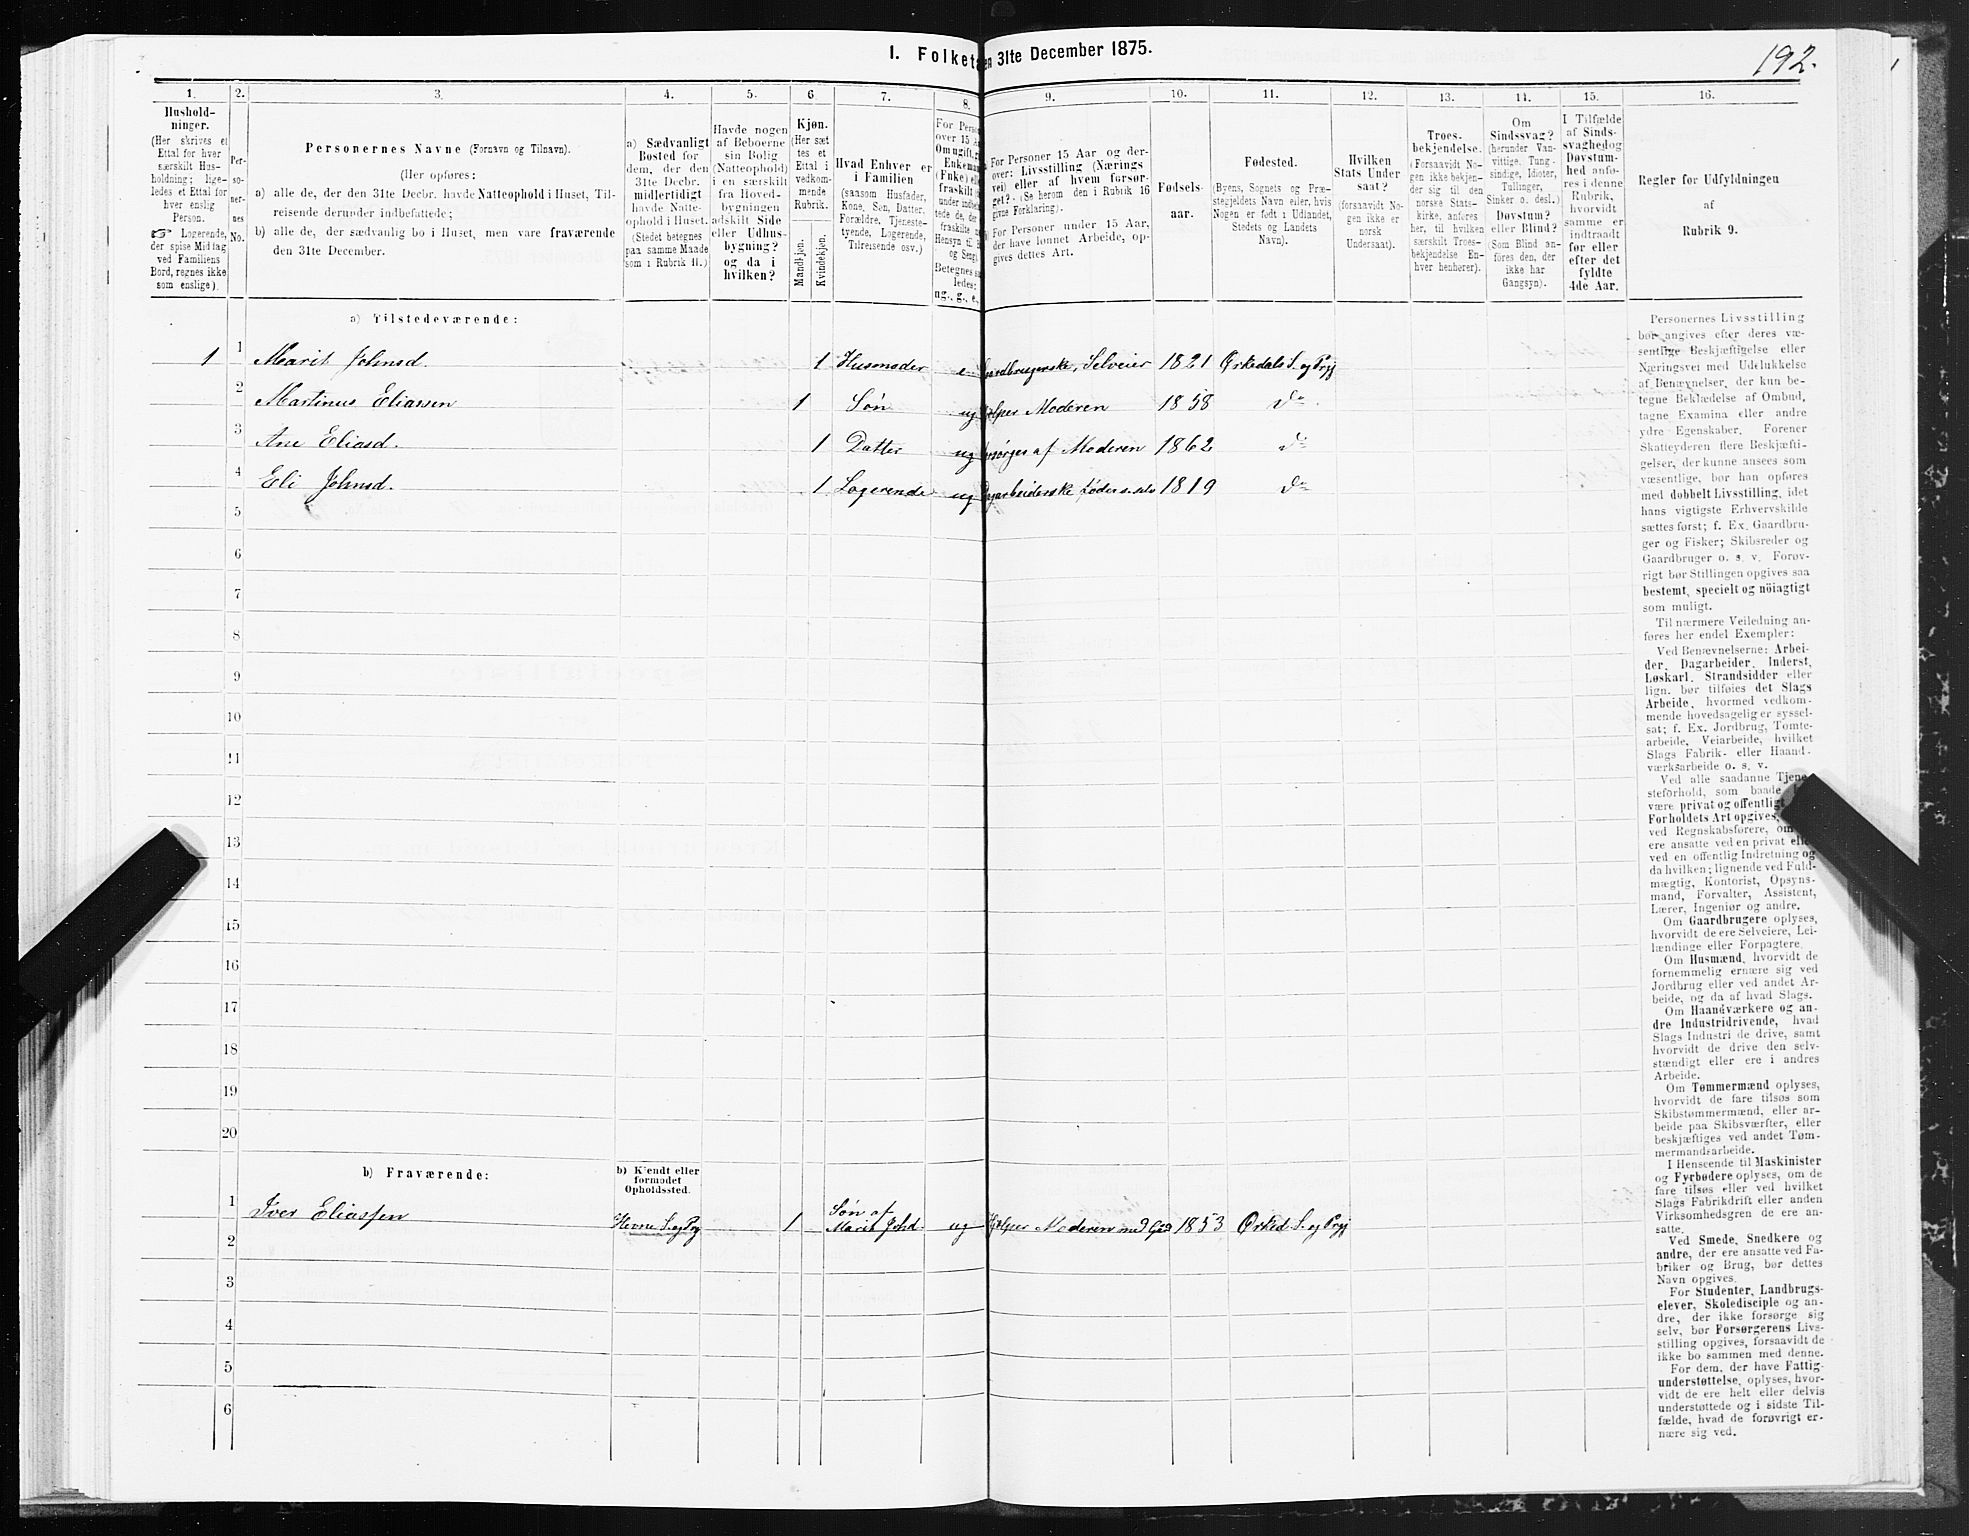 I. Folketæ
en 31te December 1875.
192.
1.
Hushold-
ninger.
(Her skrives et
Ettal for hver
særskilt Hus-
holdning; lige-
ledes et Ettal for
hver enslig
Person.
☞ Logerende,
der spise Middag
ved Familiens
Bord, regnes ikke
som enslige).
2.
Per-
so-
ner-
nes
No.
3.
Personernes Navne (Fornavn og Tilnavn).
(Her opføres:
a) alle de, der den 31te Decbr. havde Natteophold i Huset, Til-
reisende derunder indbefattede;
b) alle de, der sædvanlig bo i Huset, men vare fraværende
den 31te December.
4.
a) Sædvanligt
Bosted for
dem, der den
31te Decbr.
midlertidigt
havde Natte-
ophold i Huset.
(Stedet betegnes
paa samme Maade
som i Rubrik 11.)
5.
Havde nogen
af Beboerne
sin Bolig
(Natteophold)
i en særskilt
fra Hoved-
bygningen
adskilt Side
eller Udhus-
bygning?
og da i
hvilken?
6
Kjøn.
(Her sæt
tes et
Ettal i
vedkom-
mende
Rubrik.
Mandkjøn.
Kvindekjøn.
7.
Hvad Enhver er
i Familien
(saasom Husfader,
Kone, Søn, Datter,
Forældre, Tjeneste-
tyende, Logerende,
Tilreisende osv.)
8.
For Perso
over 15 A
Om ugift, g
Enkema
(Enke)
fraskilt
under indb
tede de, der
fraskilte
Hensyn til
og Seng)
Betegnes sa
ledes:
ug., g., e.,
9.
For Personer 15 Aar og der-
over: Livsstilling (Nærings
vei) eller af hvem forsør-
get? - (Se herom den i Rubrik 16
givne Forklaring).
For Personer under 15 Aar,
der have lønnet Arbeide, op-
gives dettes Art.
10.
Fødsels-
aar.
11.
Fødested.
(Byens, Sognets og Præ-
stegjeldets Navn eller, hvis
Nogen er født i Udlandet,
Stedets og Landets
Navn).
12.
Hvilken
Stats Under
saat?
(forsaavidt No-
gen ikke er
norsk
Undersaat).
13.
Troes-
bekjendelse.
(Forsaavidt No-
gen ikke bekjen-
der sig til den
norske Stats-
kirke, anføres
her, til hvilken
særskilt Troes-
bekjendelse En-
hver henhører).
14.
Om
Sindssvag?
(herunder Van-
vittige, Tung-
sindige, Idioter,
Tullinger,
Sinker o. desl.)
Døvstum?
eller Blind?
(Som Blind an-
føres den, der
ikke har
Gangsyn).
15.
I Tilfælde
af Sinds-
svaghed og
Døvstum-
hed anfø-
res i denne
Rubrik,
hvorvidt
samme er
indtraadt
før eller
efter det
fyldte
4de Aar.
16.
Regler for Udfyldningen
af
Rubrik 9.
a) Tilstedeværende:
1 1 Marit Johnsd. 1 Husmoder e Gaardbrugerske, Selveier 1821 Ørkedals S. og Prgj
2 Martinus Eliassen 1 Søn ug hjelper Moderen 1858 do
3 Ane Eliasd. 1 Datter ug forsørges af Moderen 1862 do
4 Eli Johnsd. 1 Logerende ug Dagarbeiderske føder s. selv 1819 do
5
6
7
8
9
10
11
12
13
14
15
16
17
18
19
20
b) Fraværende:
b) Kjendt eller
formodet
Opholdssted.
1 Iver Eliassen Hevne S. og Prg 1 Søn af
Marit Johd. ug Hjelper Moderen med Grd 1853 Ørked. S. og Prgj
2
3
4
5
6
Personernes Livsstilling
bør angives efter deres væ-
sentlige Beskjæftigelse eller
Næringsvei med Udelukkelse
af Benævnelser, der kun be-
tegne Beklædelse af Ombud,
tagne Examina eller andre
ydre Egenskaber. Forener
Skatteyderen flere Beskjæfti-
gelser, der kunne ansees som
væsentlige, bør han opføres
med dobbelt Livsstilling, idet
hans vigtigste Erhvervskilde
sættes først; f. Ex. Gaardbru-
ger og Fisker; Skibsreder og
Gaardbruger o. s. v. Forøv-
rigt bør Stillingen opgives saa
bestemt, specielt og nöiagtigt
som muligt.
Til nærmere Veiledning an-
føres her endel Exempler:
Ved Benævnelserne: Arbei-
der, Dagarbeider, Inderst,
Løskarl, Strandsidder eller
lign. bør tilføies det Slags
Arbeide, hvormed vedkom-
mende hovedsagelig er syssel-
sat; f. Ex. Jordbrug, Tomte-
arbeide, Veiarbeide, hvilket
Slags Fabrik- eller Haand-
værksarbeide o. s. v.
Ved alle saadanne Tjene
steforhold, som baade
være privat og offentligt
Forholdets Art opgives,
ved Regnskabsførere, om
ere ansatte ved en privat elle
ved en offentlig Indretning og
da hvilken; lignende ved Fuld-
mægtig, Kontorist, Opsyns-
mand, Forvalter, Assistent,
Lærer, Ingeniør og andre.
Om Gaardbrugere oplyses,
hvorvidt de ere Selveiere, Lei-
lændinge eller Forpagtere.
Om Husmænd, hvorvidt de
fornemmelig ernære sig ved
Jordbrug eller ved andet Ar-
beide, og da af hvad Slags.
Om Haandværkere og an-
dre Industridrivende, hvad
Slags Industri de drive, samt
hvorvidt de drive den selv-
stændigt eller ere i andres
Arbeide.
Om Tømmermænd oplyses,
hvorvidt de fare tilsøs som
Skibstømmermænd, eller ar-
beide paa Skibsværfter, eller
beskjæftiges ved andet Tøm-
mermandsarbeide.
I Henseende til Maskinister
og Fyrbødere oplyses, om de
fare tilsøs eller ved hvilket
Slags Fabrikdrift eller anden
Virksomhedsgren de ere an-
satte.
Ved Smede, Snedkere og
andre, der ere ansatte ved Fa-
briker og Brug, bør dettes
Navn opgives.
For Studenter, Landbrugs-
elever, Skoledisciple og an-
dre, der ikke forsørge sig
selv, bør Forsørgerens Livs-
stilling opgives, forsaavidt de
ikke bo sammen med denne.
For dem, der have Fattig-
understøttelse, oplyses, hvor-
vidt de ere helt eller delvis
understøttede og i sidste Til-
fælde, hvad de forøvrigt er-
nære sig ved.